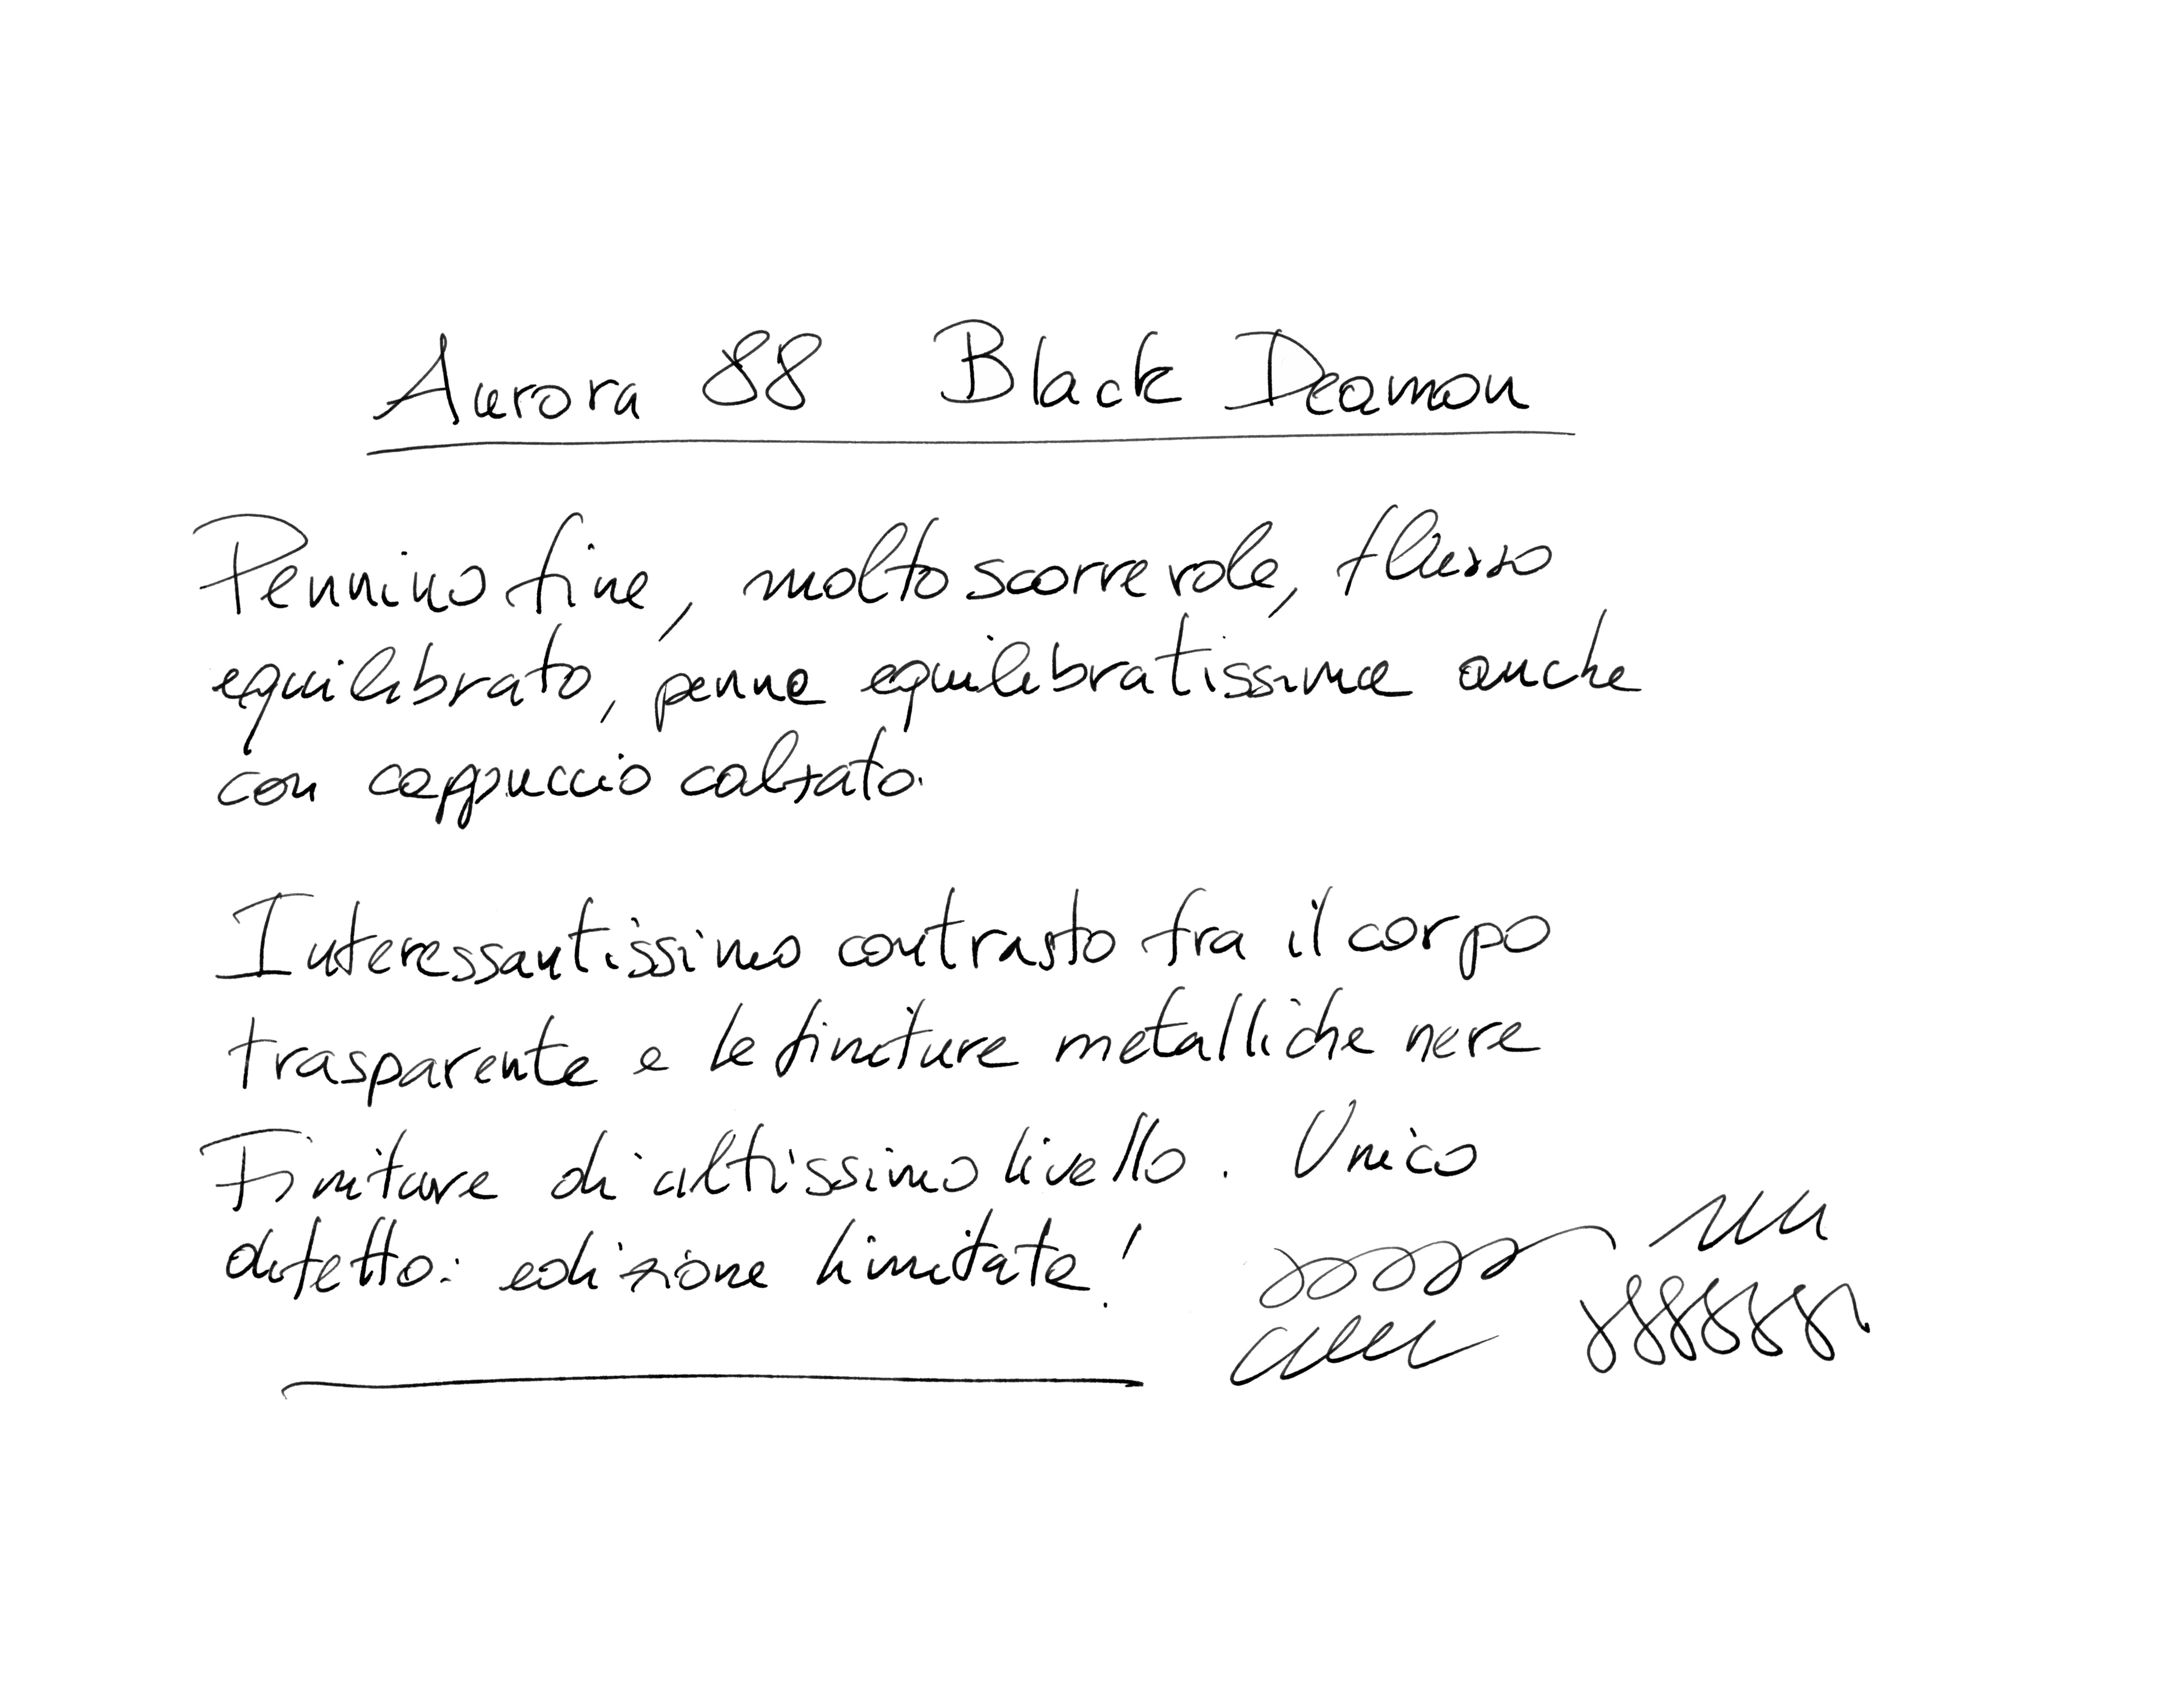 Aurora 88 Black Deamon
Pennino fine, molto scorrevole, flusso
equilibrato, penna equilibratissima anche
con cappuccio calzato.
Interessantissimo contrasto fra il corpo
trasparente e le finiture metalliche nere
Finiture di altissimo livello. Unico
difetto: edizione limitata!